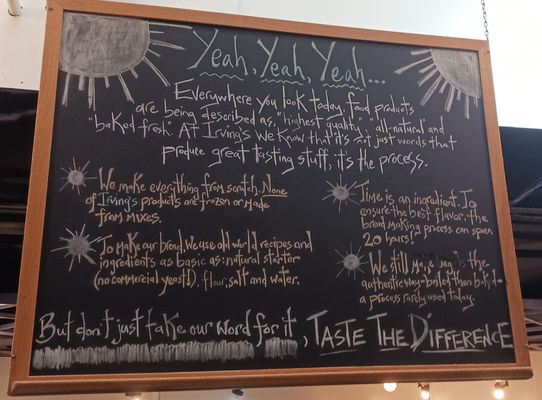 Yeah, Yeah, Yeah...
Everywhere you look today, food products
are being described as, "highest quality", "all-natural" and
"baked fresh". At Irving's we know that it's not just words that
produce great tasting stuff, it's the process.
We make everything from scratch. None
of Irving's products are frozen or made
from mixes.
To make our bread, we use old world recipes and
ingredients as basic as: natural starter
(no commercial yeast!), flour, salt and water.
Time is an ingredient. To
ensure the best flavor, the
bread making process can span
20 hours!
We still the
authentic way-boiled then
a process rarely used today.
But don't just take our word for it, TASTE THE DIFFERENCE